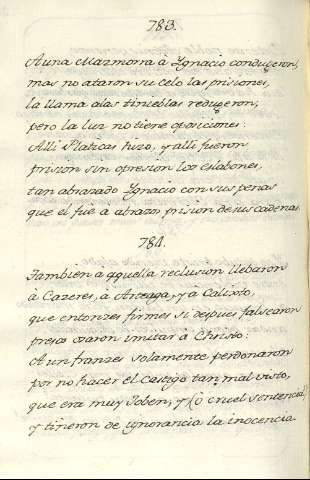 783.
A una Mazmorra à Ygnacio conduçeron,
mas no ataron su celo las prisiones,
la llama alas tinieblas reduçeron,
pero la luz no tiene oposiciones:
Alli Platicas hizo, y alli fueron
prision sin opresion los eslabones,
tan abrazado Ygnacio con sus penas
que el fué a abrazar prision de sus cadenas.
784.
Tambien à aquella reclusion llebaron
à Cazeres, à Arteaga, y à Calixto,
que entonzes firmes si depues falsearon
presos osaron imitar à Christo:
A un franzes solamente perdonaron
por no hacer el Castigo tan mal visto,
que era muy Joben, y (ò cruel sentencia)
y tiñeron de ygnorancia la inocencia